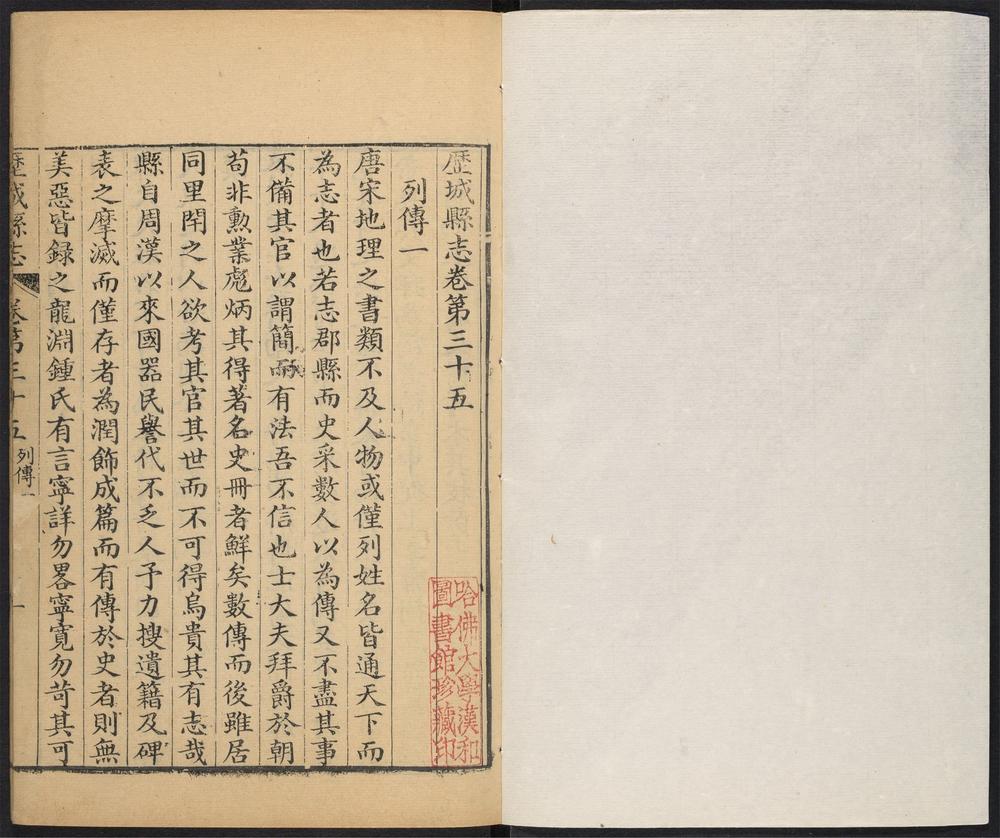 歷城縣志卷第三十五
列傳一
唐宋地理之書類不及人物或僅列姓名皆通天下而
為志者也若志郡縣而史采數人以為傳又不盡其事
不備其官以謂簡而有法吾不信也士大夫拜爵於朝
苟非勳業彪炳其得著名史冊者鮮矣數傳而後雖居
同里閈之人欲考其官其世而不可得烏貴其有志哉
縣自周漢以來國器民譽代不乏人予力搜遺籍及碑
表之摩滅而僅存者為潤飾成篇而有傳於史者則無
美惡皆録之龍淵鍾氏有言寧詳勿畧寧寬勿苛其可
歷城縣志
卷第三十五
列傳一
一
哈佛大學漢和
圖書館珍藏印